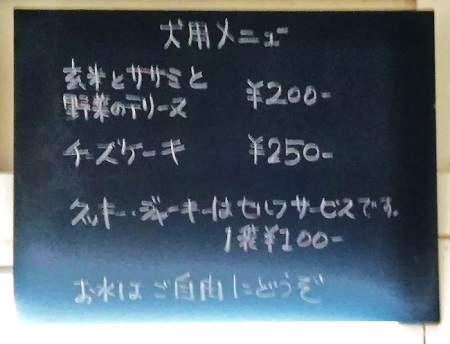 犬用メニュー
玄米とササミと
野菜のテリーヌ ¥200-
チーズケーキ ¥250-
クッキー・ジャーキーはセルフサービスです。
1袋¥100-
お水はご自由にどうぞ